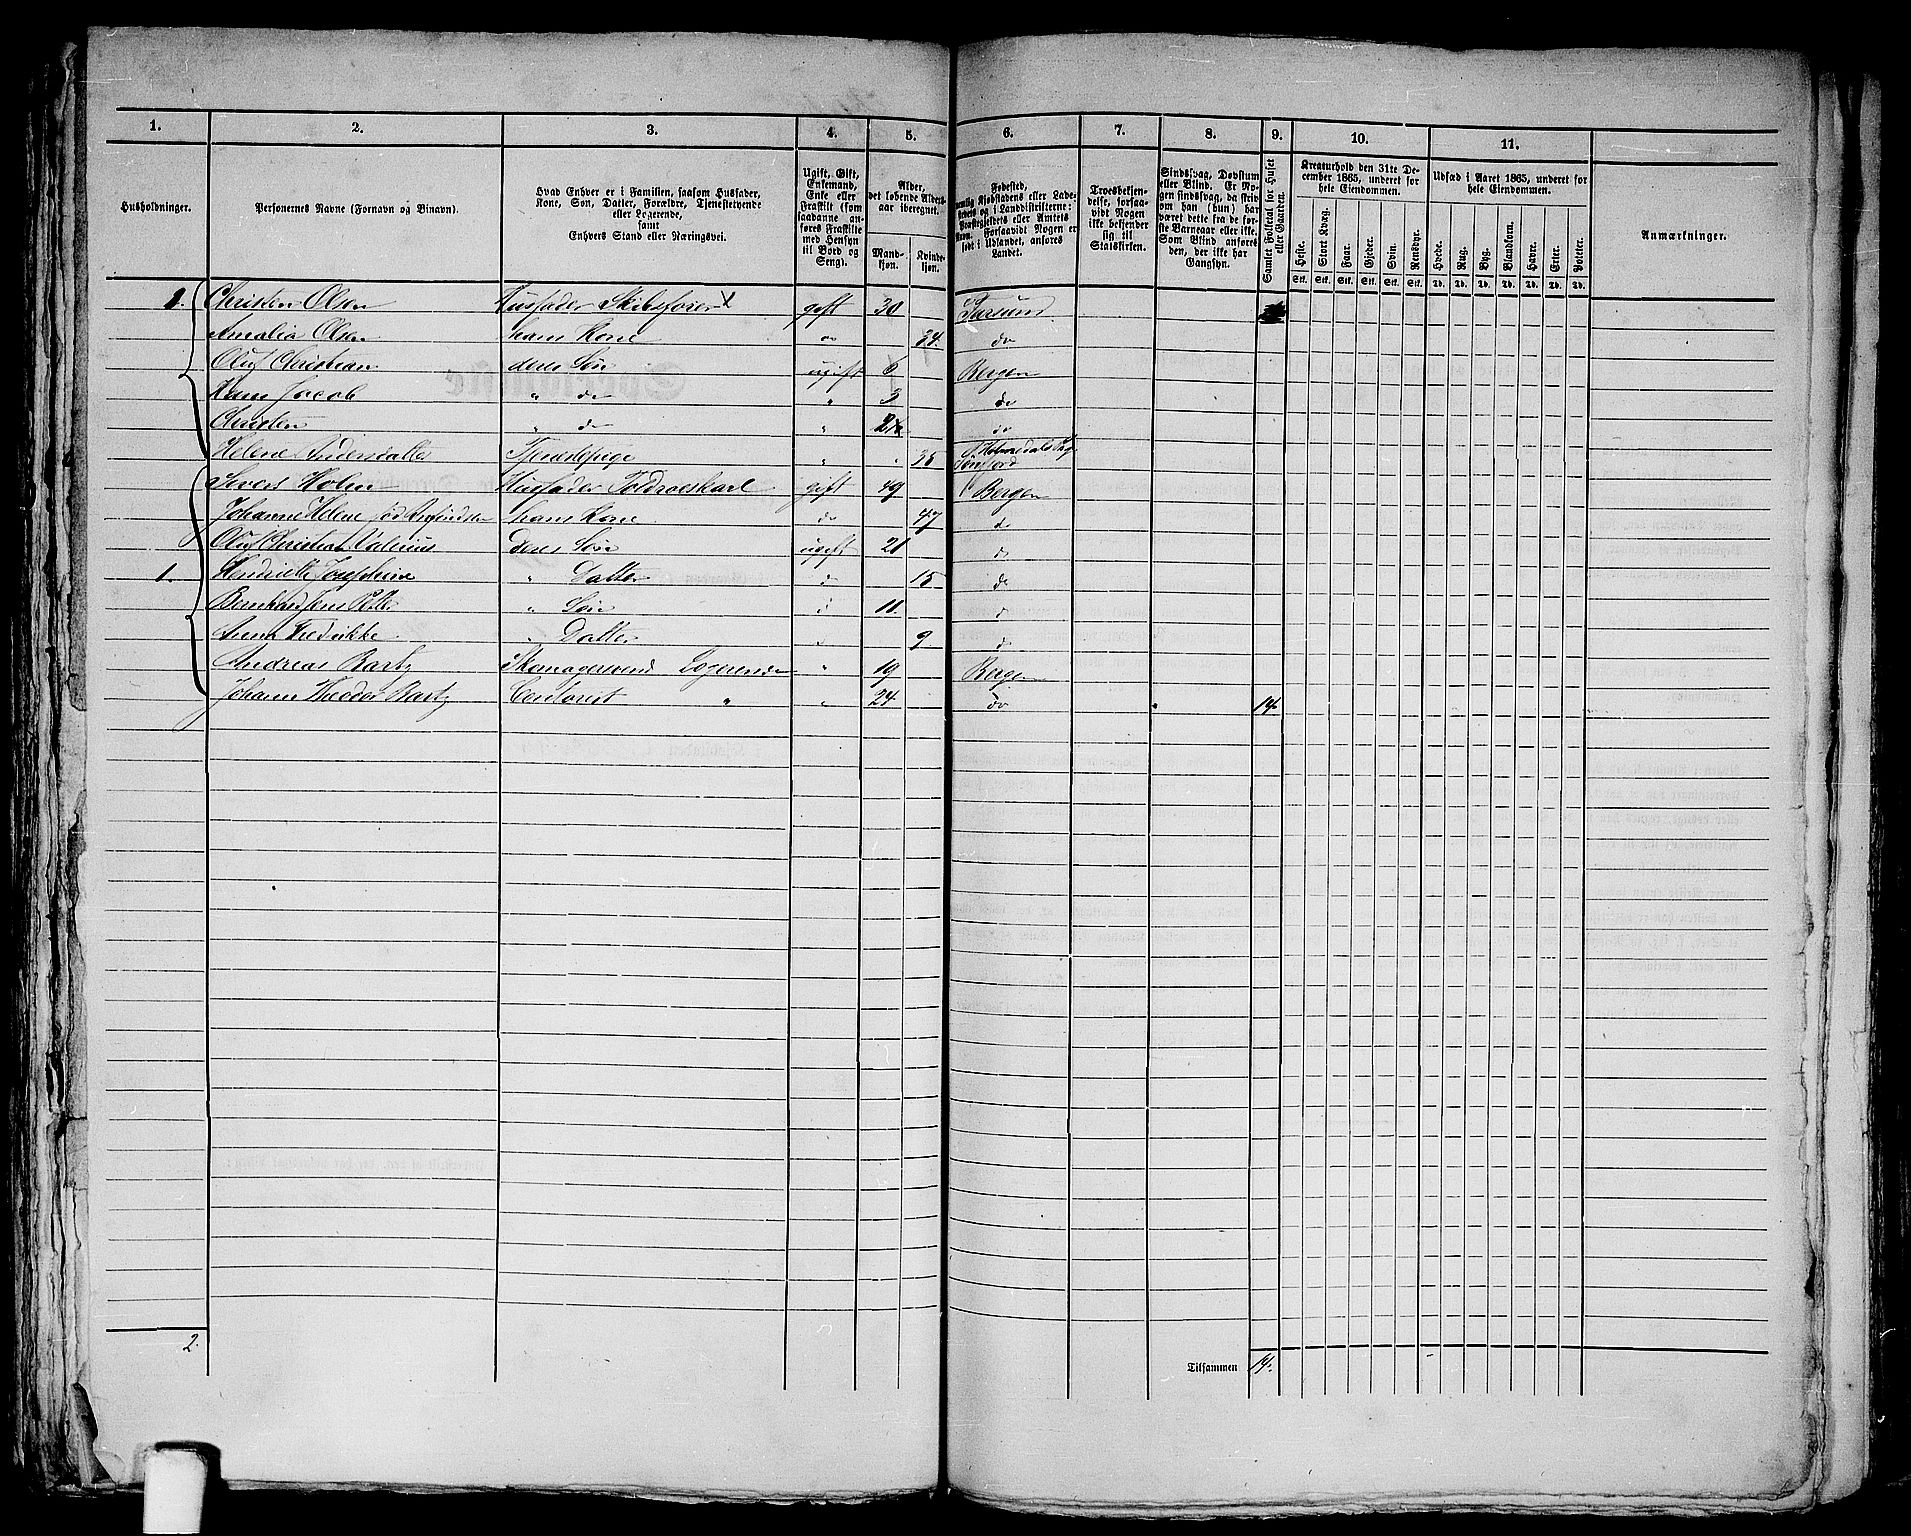 1. 2. 3. 4. 5. 6. 7. 8. 9. 10. 11.
Husholdninger.
Personernes Navne (Fornavn og Binavn).
Hvad Enhver er i Familien, saasom Husfader,
Kone, Søn, Datter, Forældre, Tjenestetyende
eller Logerende,
samt
Enhvers Stand eller Næringsvei.
Ugift, Gift,
Enkemand,
Enke eller
Fraskilt (som
saadanne an-
føres Fraskilte
med Hensyn
til Bord og
Seng).
Alder,
det løbende Alders-
aar iberegnet.
Mand-
kjøn.
Kvinde-
kjøn.
Fødested,
nemlig Kjøbstadens eller Lade-
stedets og i Landdistrikterne:
Præstegjeldets eller Amtets
Navn. Forsaavidt Nogen er
født i Udlandet, anføres
Landet.
Troesbekjen-
delse, forsaa-
vidt Nogen
ikke bekjender
sig til
Statskirken.
Sindssvag, Døvstum
eller Blind. Er No-
gen sindssvag, da skriv
om han (hun) har
været dette fra de før-
ste Barneaar eller ikke.
Som Blind anføres
den, der ikke har
Gangsyn.
Samlet Folketal for Huset
eller Gaarden.
Kreaturhold den 31te De-
cember 1865, underet for
hele Eiendommen.
Heste. Stort Kvæg. Faar. Gjeder. Svin. Rensdyr.
Stk. Stk. Stk. Stk. Stk. Stk.
Udsæd i Aaret 1865, underet for
hele Eiendommen.
Hvede. Rug. Byg. Blandkorn. Havre. Erter. Poteter.
Td. Td. Td. Td. Td. Td. Td.
Anmærkninger.
1. Christen Olsen Husfader Skibsfører gift 30 Farsund
Amalia Olsen hans Kone do 34. do
Oluf Christian deres Søn ugift 6 Bergen
Hans Jacob " do " 3 do
Christen " do " do
Helene Andersdatter Tjenestepige " " 35 Holmedals Søndfjord
Sivert Holm Husfader Toldroerskarl gift 49 Bergen
Johanne Helene fød Arfindsen hans Kone do 47 do
Oluf Christian Valerius Deres Søn ugift 21 do
1. Henriette Josephine " Datter d 15 do
Bernhard Jens Peter " Søn d 11. d
Anna Fredrikke " Datter " 9 d
Andreas Bartz Skomagersvend Logerende " 19 Bergen
Johann Theodor Bartz Contorist " " 24 do 14
2. Tilsammen 14.